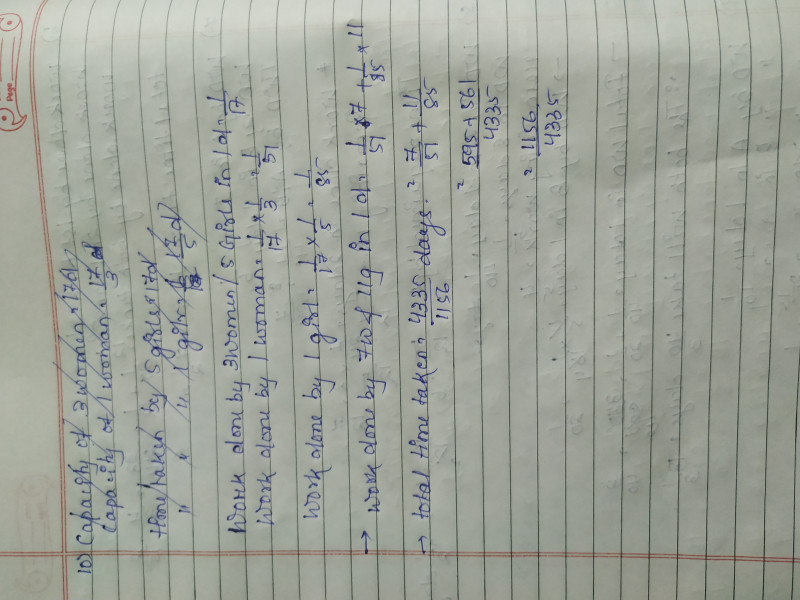 Page
10) Capacity of 3 women = 17d
Capacity of 1 woman = 17/3 d
time taken by 5 girls = 17d
" " " 1 girl = 17/5 d
Work done by 3 women/5 Girls in 1d = 1/17
Work done by 1 woman = 1/17 × 1/3 = 1/51
Work done by 1 girl = 1/17 × 1/5 = 1/85
→ Work done by 7w & 11g in 1d = 1/51 × 7 + 1/85 × 11
= 7/51 + 11/85
= 595 + 561/4335
= 1156/4335
→ total time taken = 4335/1156 days.